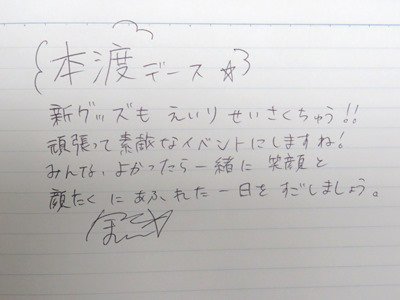 {本渡デース☆}
新グッズも えいりせいさくちゅう!!
頑張って素敵なイベントにしますね!
みんな、よかったら一緒に 笑顔と
顔たくにあふれた一日をすごしましょう。